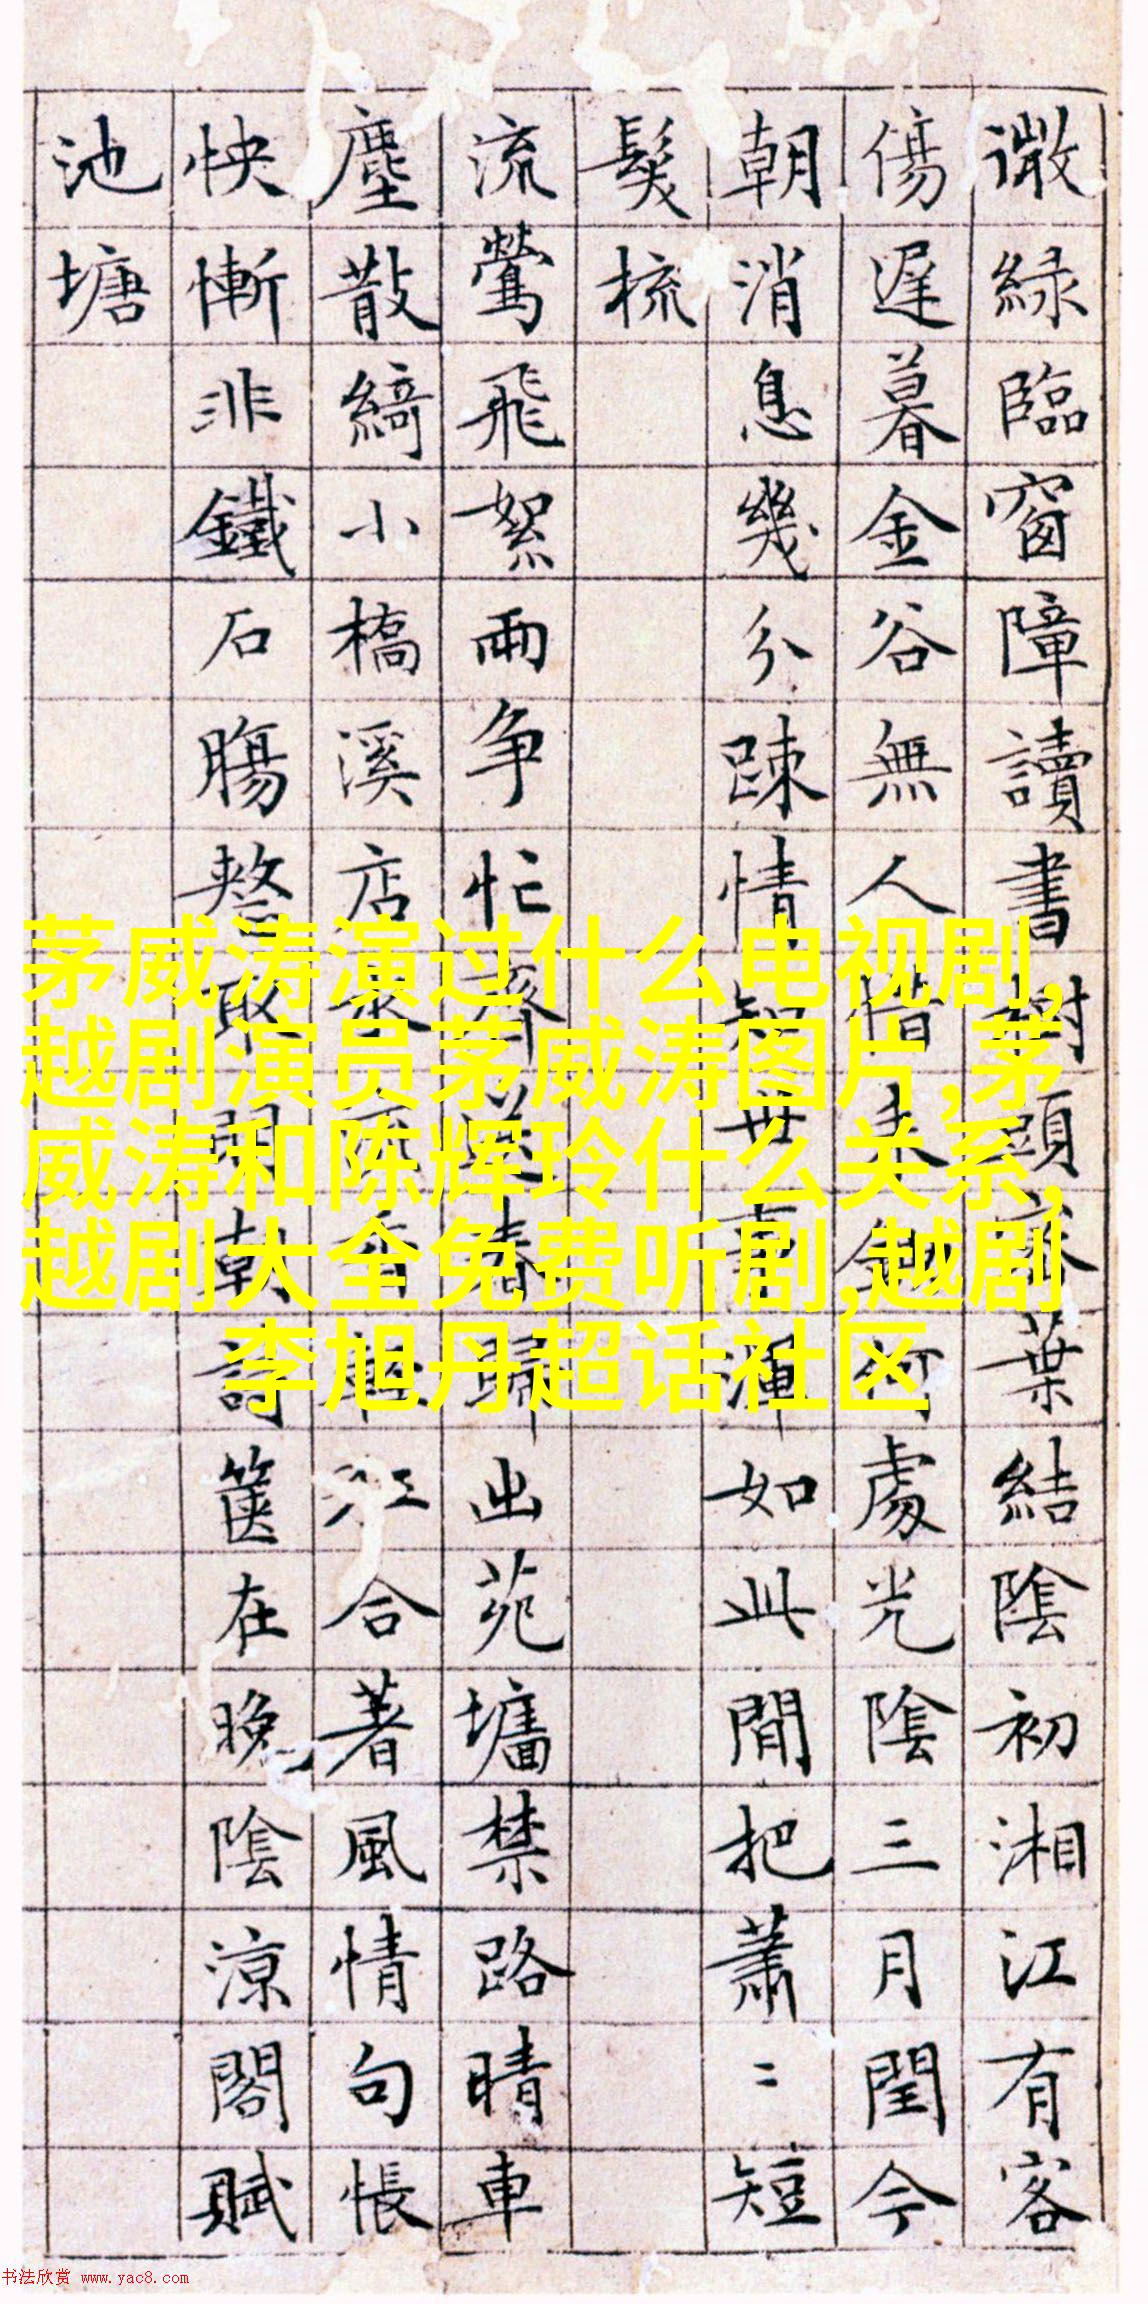 微綠臨窗障讀書葉結陰初湘江有客
傷遲暮金谷無人惜何處光陰三月閏今
朝消息幾分踈情世事渾如此間把蕭〻短
鬂梳
流鶯飛絮兩争忙齊送春歸出苑墻禁路晴車
塵散綺小橋溪店香江合著風情句悵
怏慚非鐵石腸朝詩篋在晚陰涼閣賦
池塘
茅威涛演过什么电视剧,
越剧演员茅威涛图片,茅
威涛和陈辉玲什么关系,
越剧大全免费听剧,越剧
李旭丹超话社区
书法欣赏 www.yac8.com